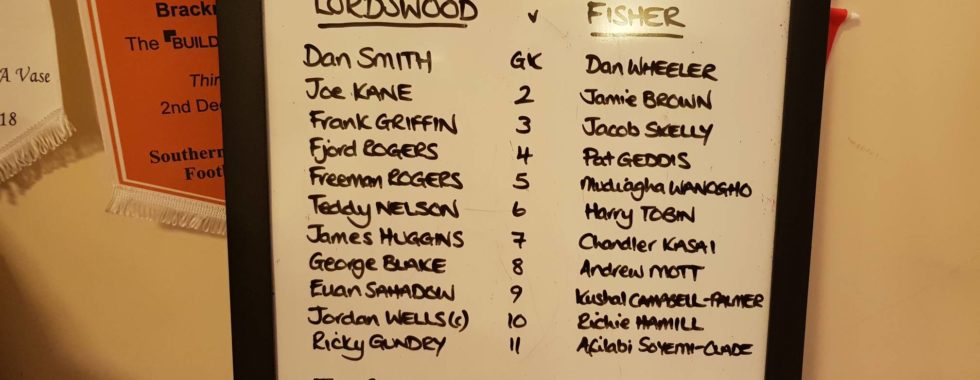 A Vase
18
Brackn
The BUILD
Thir
2nd De
Southern
Foot
LORDSWOOD v FISHER
Dan SMITH GK Dan WHEELER
Joe KANE 2 Jamie BROWN
Frank GRIFFIN 3 Jacob SKELLY
Fjord ROGERS 4 Pat GEDDIS
Freeman ROGERS 5 Mudiagha WANOGHO
Teddy NELSON 6 Harry TOBIN
James HUGGINS 7 Chandler KASAI
George BLAKE 8 Andrew MOTT
Euan SAHADOW 9 Kushal CAMPBELL-PALMER
Jordan WELLS(c) 10 Richie HAMILL
Ricky GUNDRY 11 Afilabi SOYEMI-OLADE